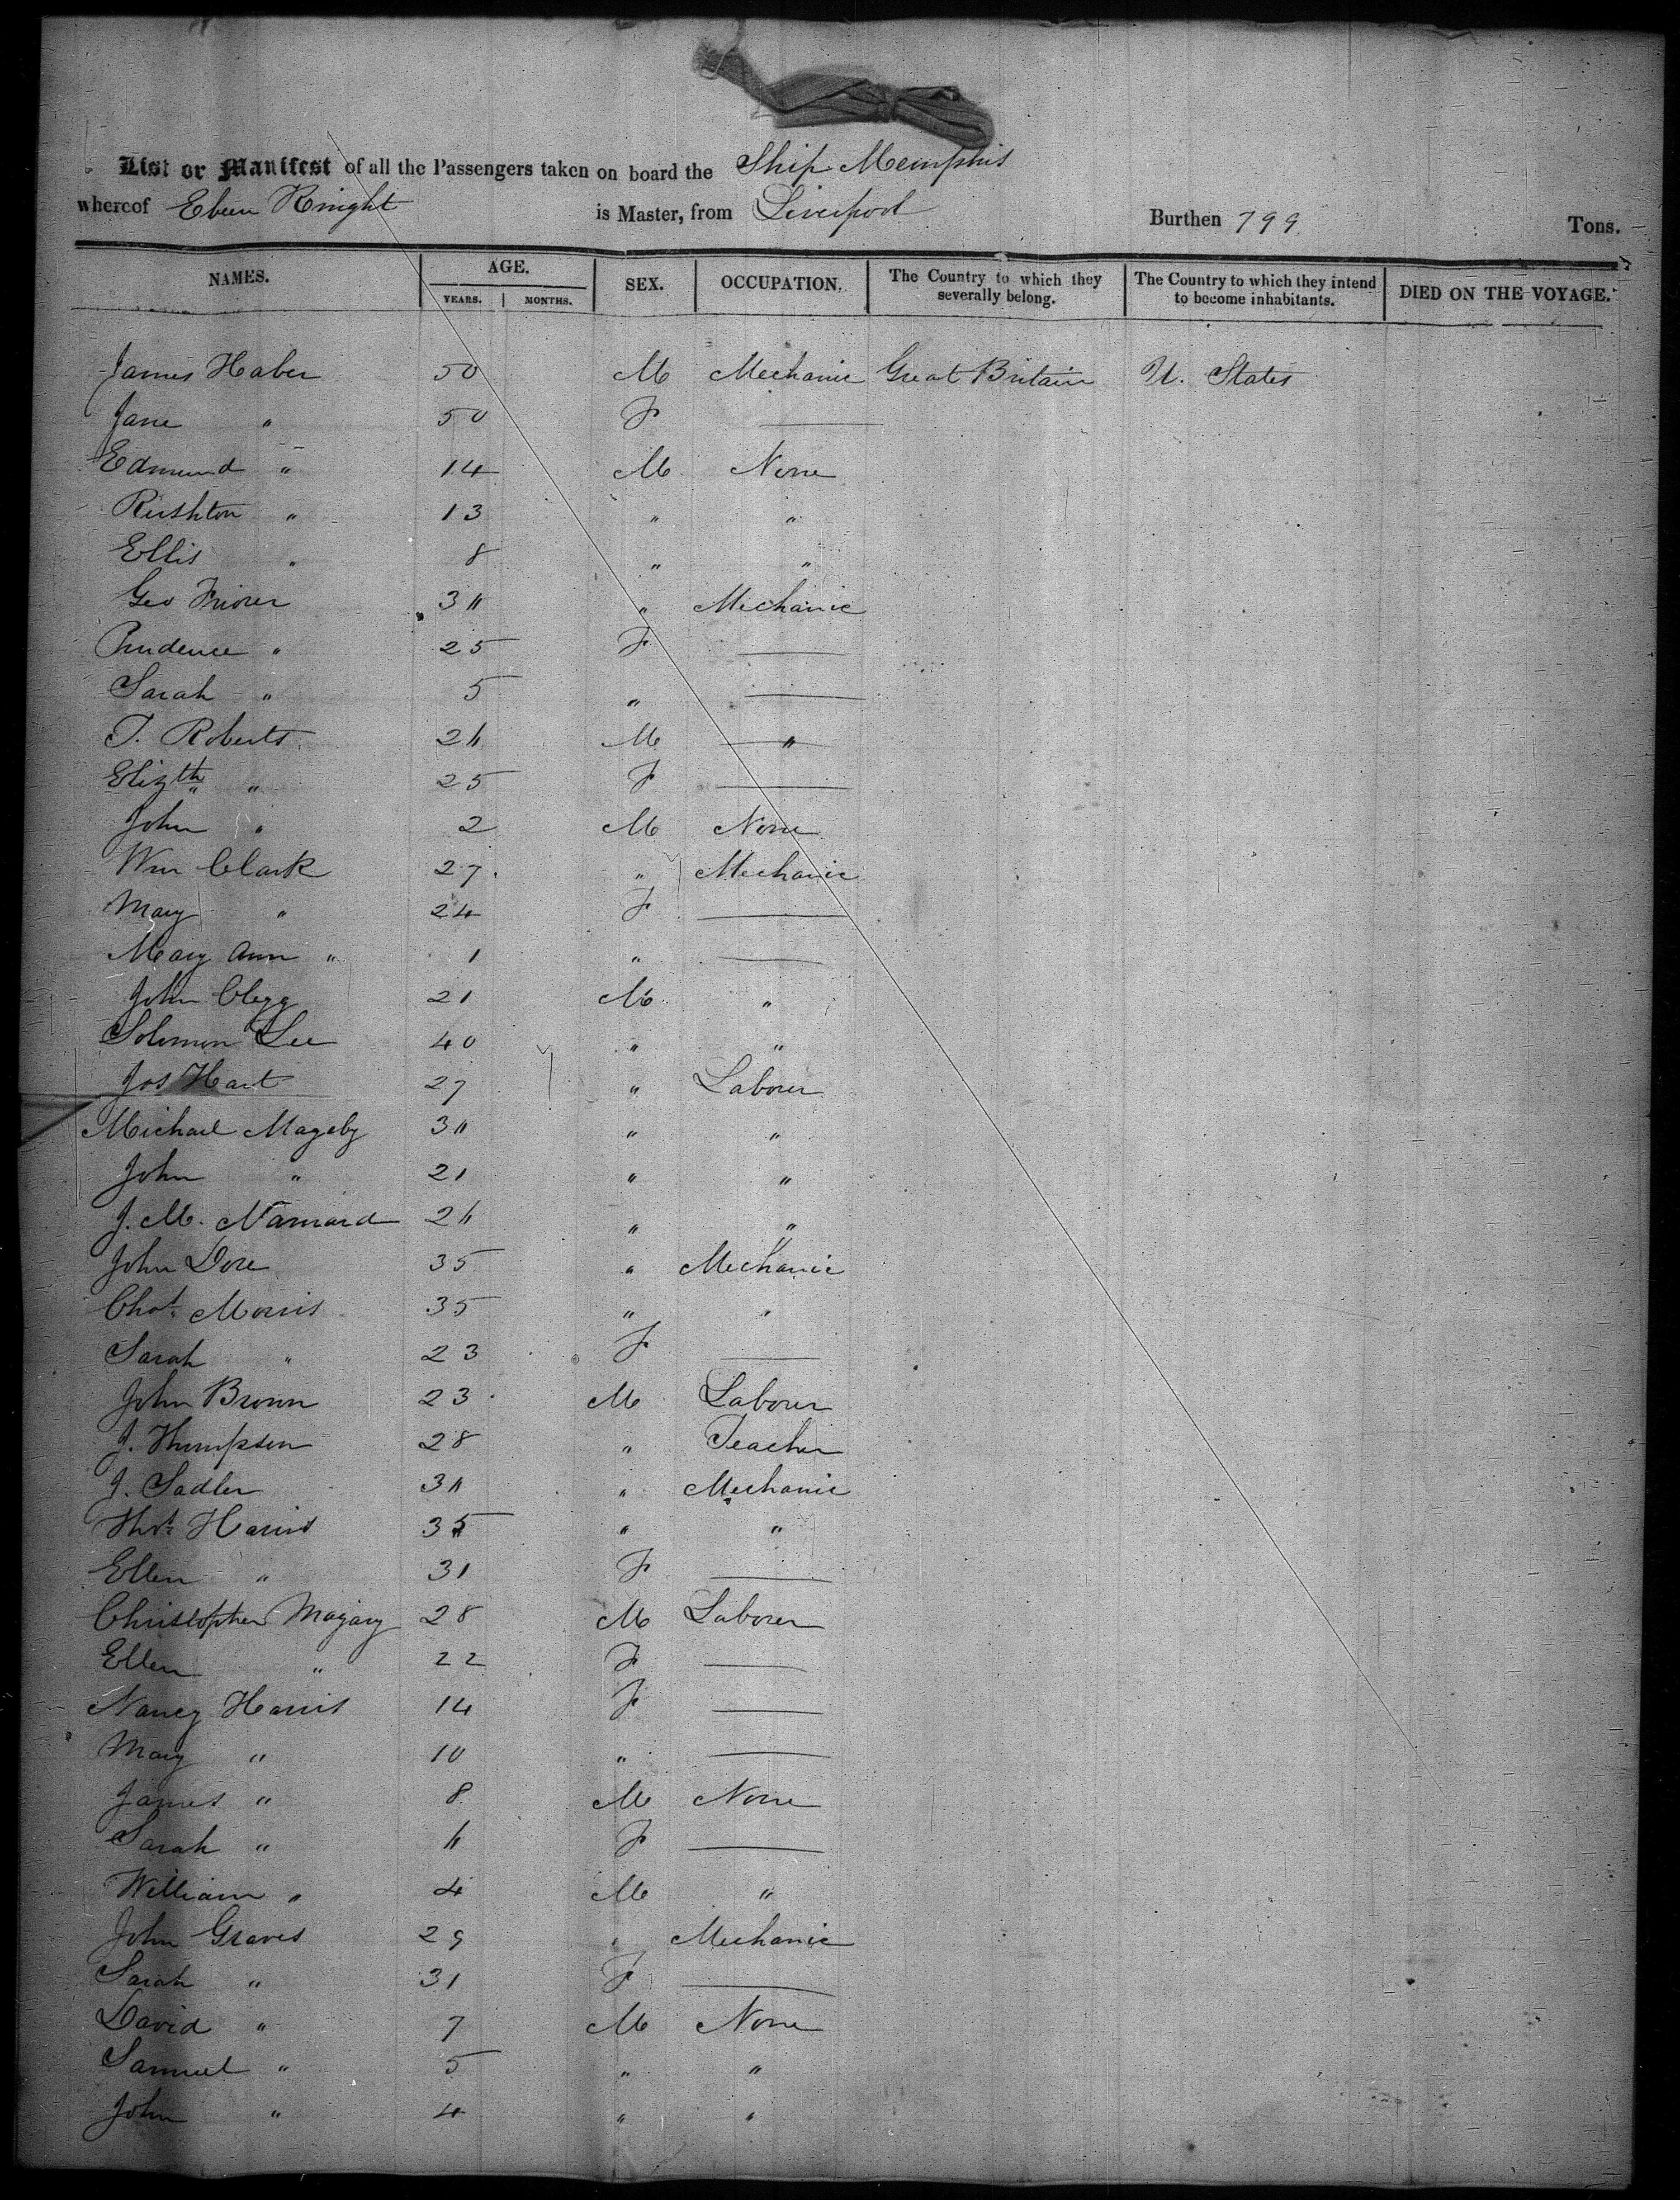 List or Manifest of all the Passengers taken on board the Ship Memphis
whereof Eben Knight is Master, from Liverpool Burthen 799 Tons.
NAMES. AGE. SEX. OCCUPATION. The Country to which they severally belong. The Country to which they intend to become inhabitants. DIED ON THE VOYAGE.
YEARS. MONTHS.
James Haber 50 M Mechanic Great Britain U. States
Jane " 50 F —
Edmund " 14 M None
Rushton " 13 " "
Ellis " 8 " "
Geo 36 " Mechanic
Prudence " 25 F —
Sarah " 5 " —
T. Roberts 26 M "
Elizth " 25 F —
John " 2 M None
Wm Clark 27 " Mechanic
Mary " 24 F —
Mary Ann " 1 " —
John Clegg 21 M "
Solomon Lee 40 " "
Jos Hart 27 " Laborer
Michael Mageby 36 " "
John " 21 " "
J. M. 26 " "
John Dore 35 " Mechanic
Chas. Morris 35 " "
Sarah " 23 F —
John Brown 23 M Laborer
J. Thompson 28 " Teacher
J. Sadler 36 " Mechanic
Thos. Harris 35 " "
Ellen " 31 F —
Christopher 28 M Laborer
Ellen " 22 F —
Nancy Harris 14 F —
Mary " 10 " —
James " 8 M None
Sarah " 6 F —
William " 4 M "
John Graves 29 " Mechanic
Sarah " 31 F —
David " 7 M None
Samuel " 5 " "
John " 4 " "